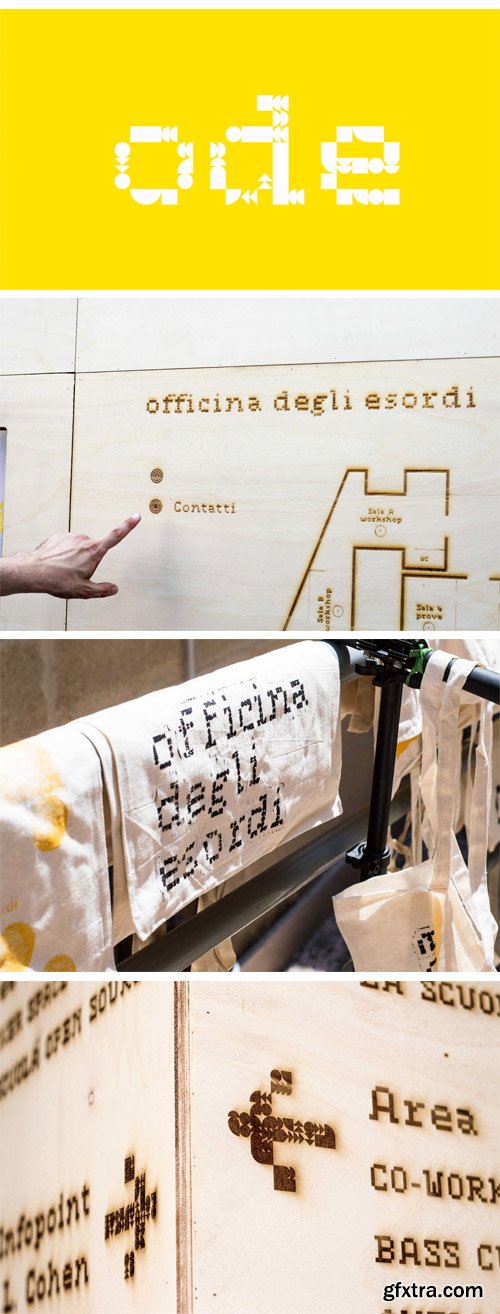 ode
officina degli esordi
Contatti
Sala A
workshop
WC
Sala B
workshop
Sala 4
prove
officina
degli
esordi
di
ER SPACE
SCUOLA OPEN SOURC
LA SCUOL
Infopoint
L. Cohen
Area
CO-WORK
BASS CU
gfxtra.com